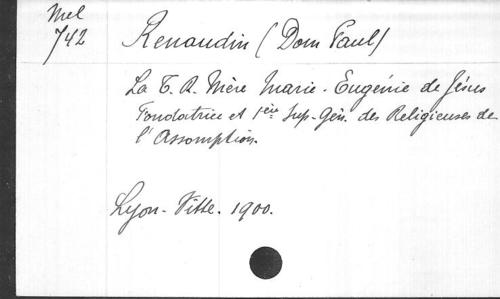 Mel
742
Renaudin (Dom Paul)
La T. R. Mère Marie-Eugénie de Jésus
Fondatrice et 1ère Sup-Gén. des Religieuses de
l'Assomption.
Lyon-Vitte. 1900.